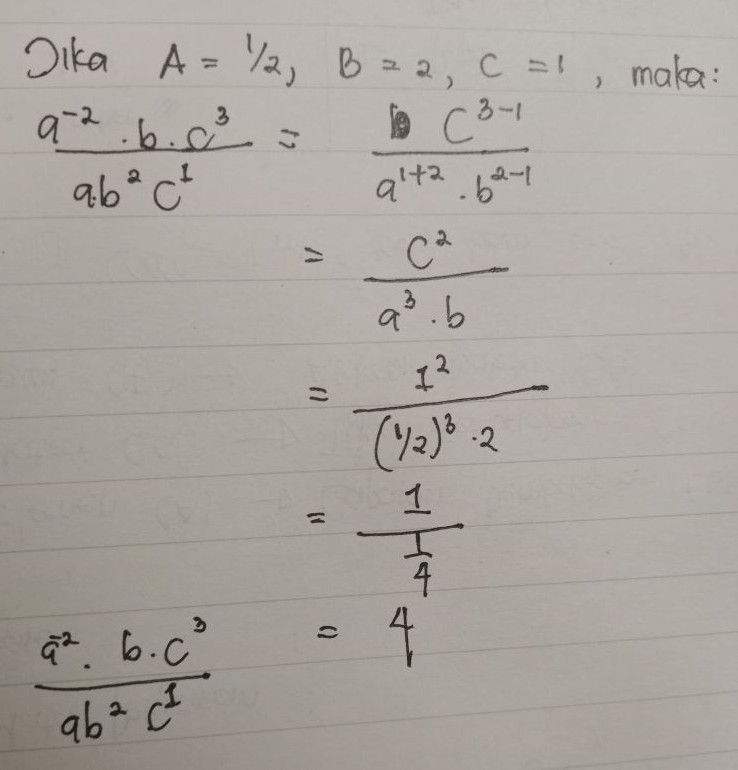 Jika A = 1/2, B = 2, C = 1, maka:
a⁻² . b . c³ / ab² c¹ = c³⁻¹ / a¹⁺² . b²⁻¹
= c² / a³ . b
= 1² / (1/2)³ . 2
= 1 / 1/4
a⁻² . b . c³ / ab² c¹ = 4